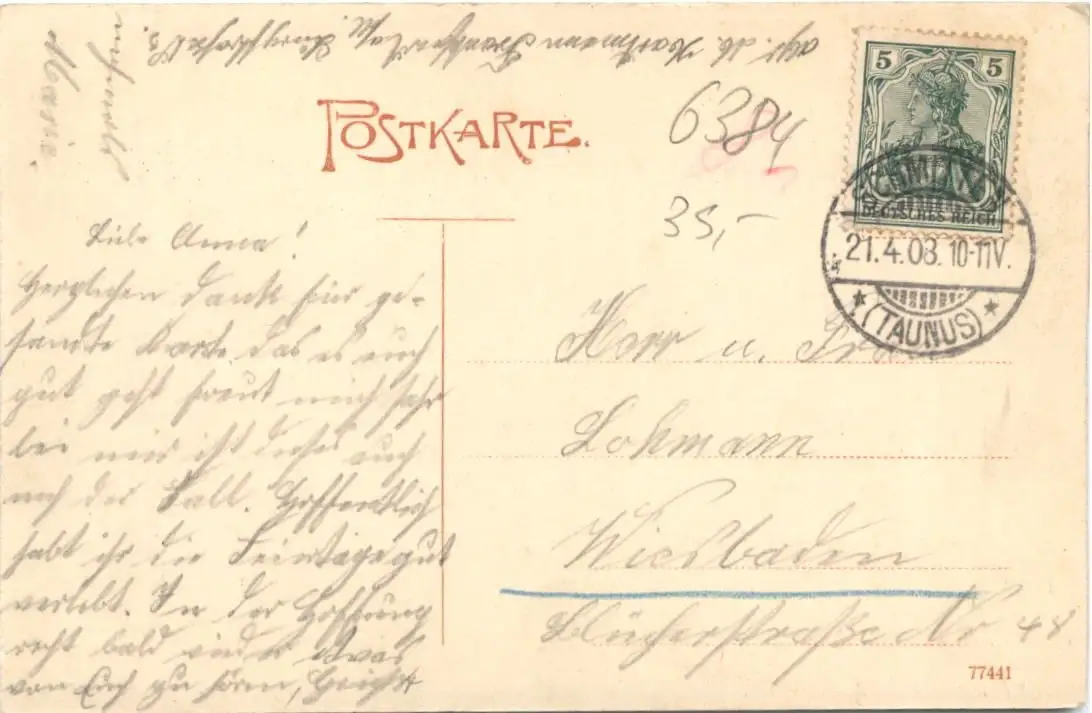 POSTKARTE.
6384
35,-
5 5
DEUTSCHES REICH
21.4.08. 10-11V.
(TAUNUS)
Liebe Anna!
Herzlichen Dank für ge-
sandte Karte, das es euch
gut geht freut mich sehr
bei mir ist dieses auch
der Fall. Hoffentlich
habt ihr die Feiertage gut
verlebt. In der Hoffnung
recht bald wieder etwas
von Euch zu hören,
Marie.
Herr u.
Lohmann
Wiesbaden
Blücherstraße Nr 48
77441